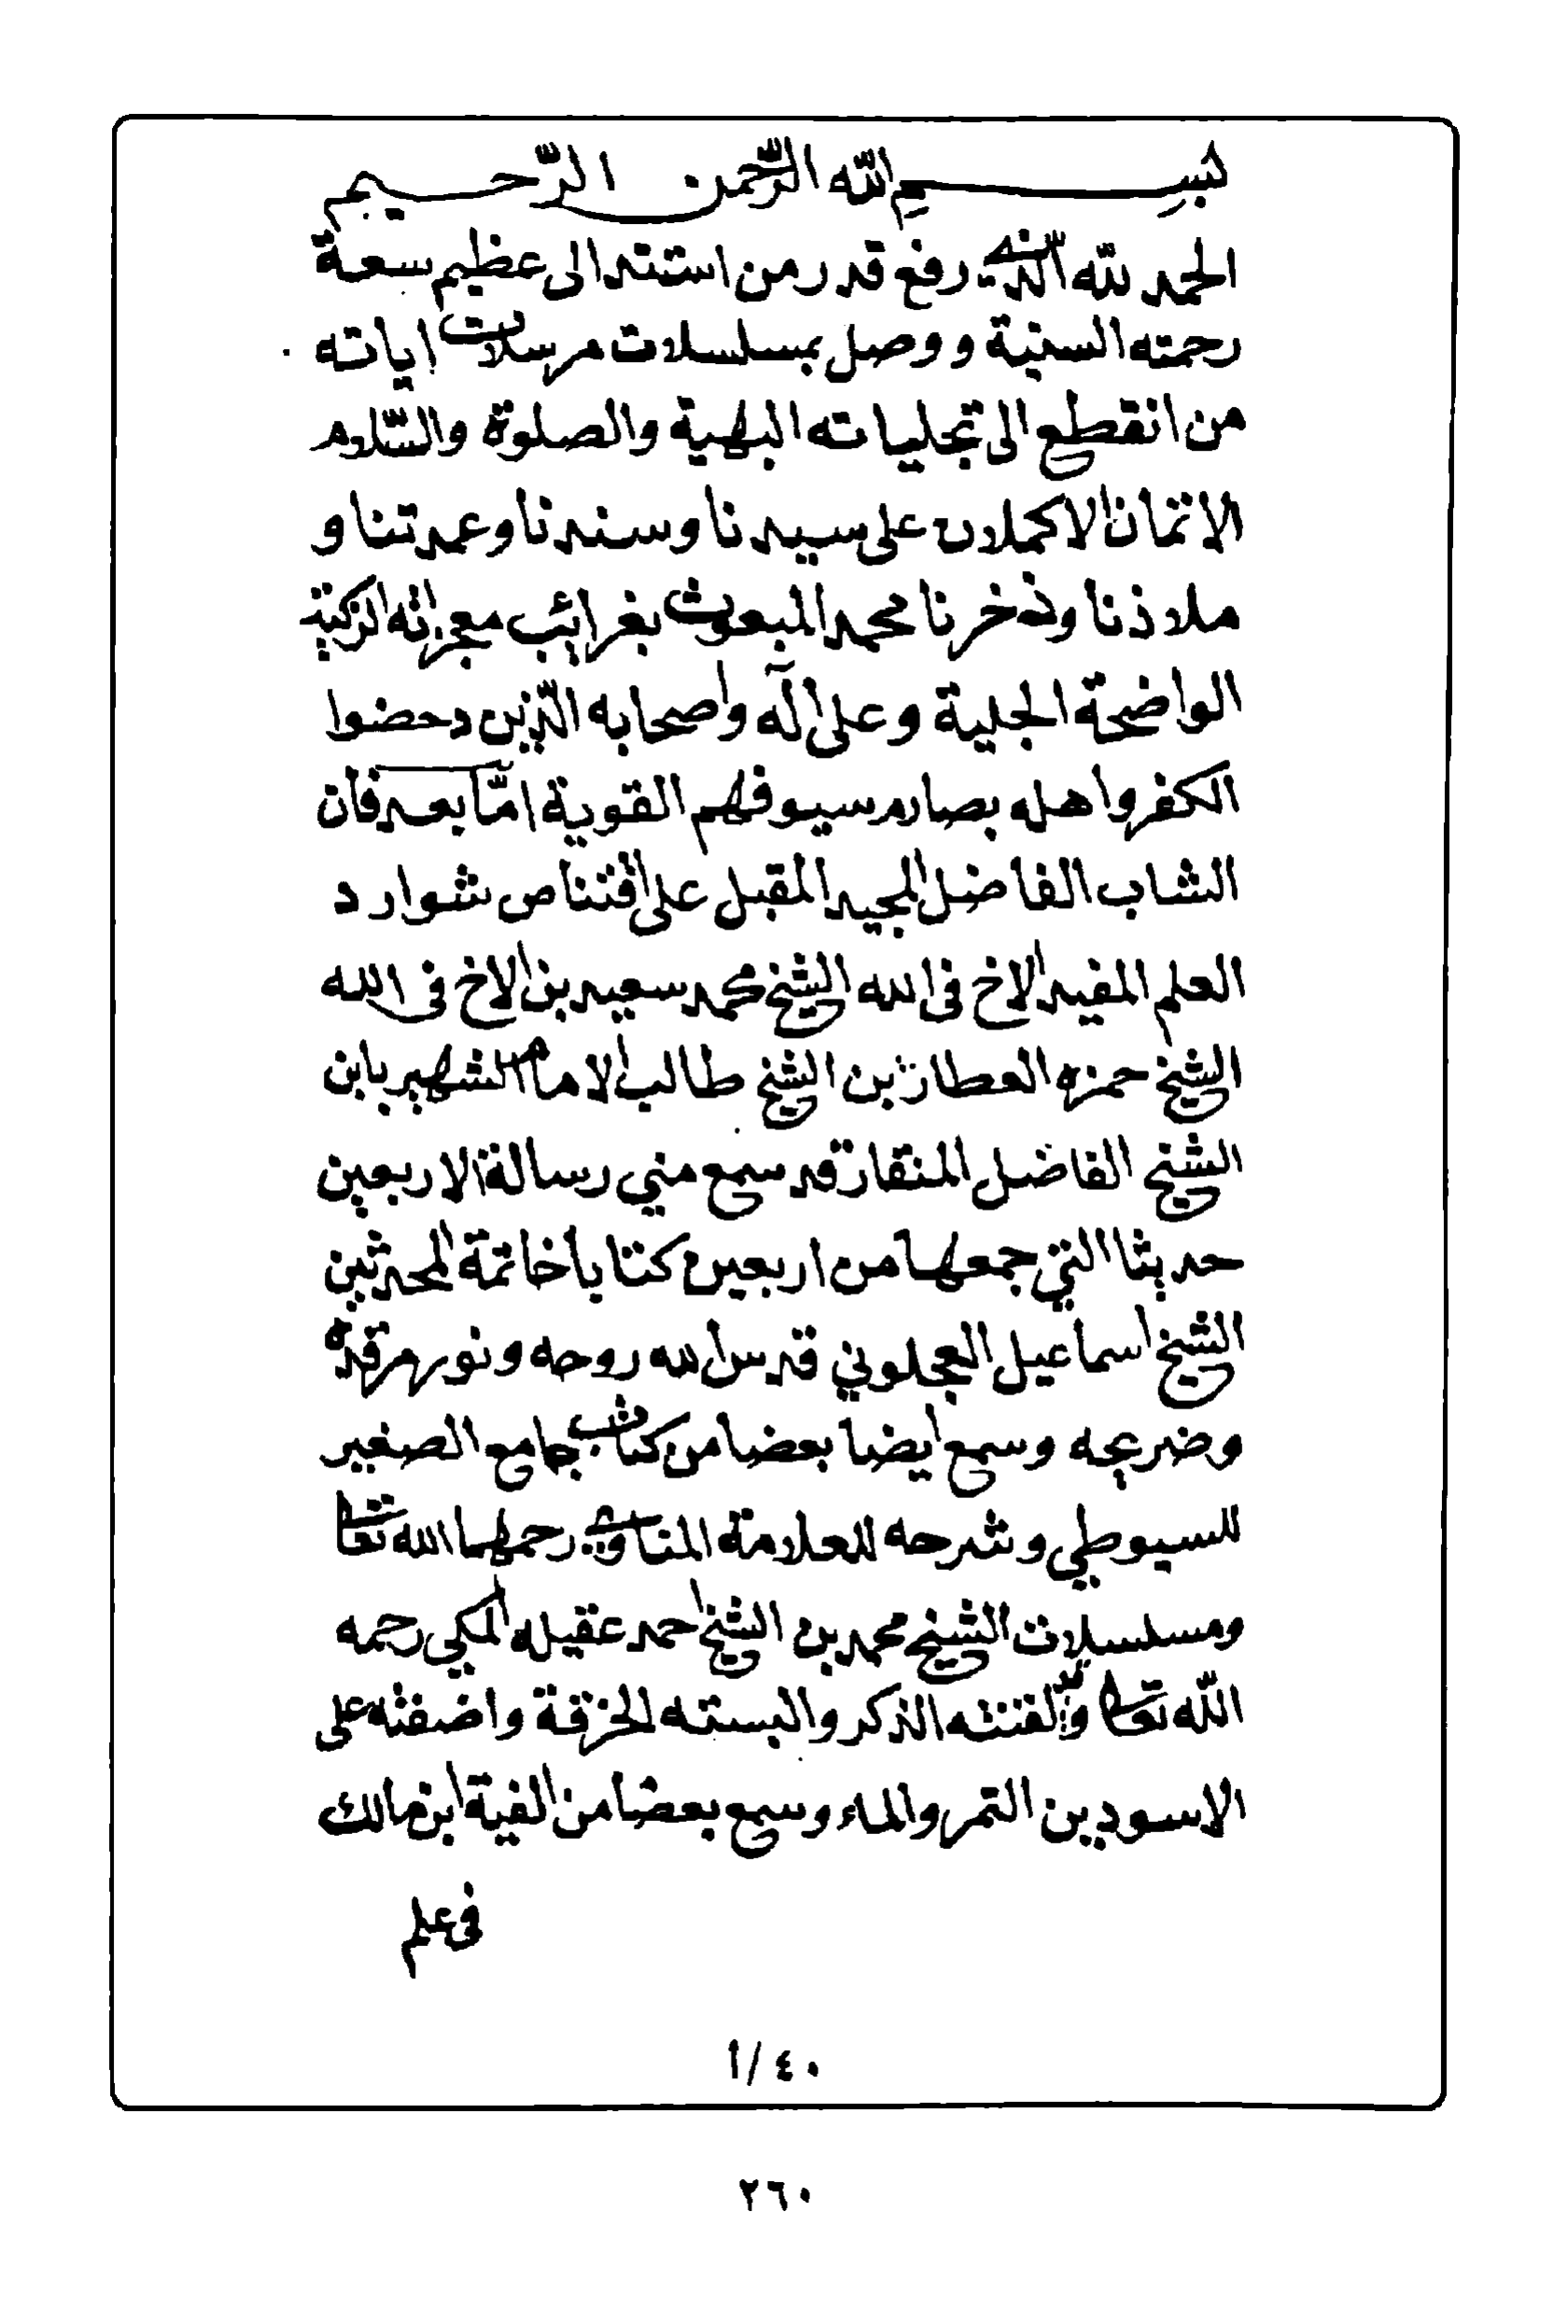 بسم الله الرّحمن الرّحيم
الحمد لله الّذي رفع قدر من استند الى عظيم سعة
رحمته السنية ووصل بمسلسلات مرسلات اياته
من انقطع الى تجلياته البهية والصلوة والسّلام
الاتمان الاكملان على سيدنا وسندنا وعمدتنا و
ملاذنا وذخرنا محمد المبعوث بغرائب معجزاته الزكية
الواضحة الجلية وعلى آله واصحابه الّذين دحضوا
الكفر واهله بصارم سيوفهم القوية امّا بعد فان
الشاب الفاضل المجيد المقبل على اقتناص شوارد
العلم المفيد الاخ في الله الشيخ محمد سعيد بن الاخ في الله
الشيخ حمزه العطار بن الشيخ طالب الامام الشهير بابن
الشيخ الفاضل المنقار قد سمع مني رسالة الاربعين
حديثا التي جمعها من اربعين كتابا خاتمة المحدثين
الشيخ اسماعيل العجلوني قدس الله روحه ونور مرقده
وضريحه وسمع ايضا بعضا من كتاب جامع الصغير
للسيوطي وشرحه للعلامة المناوي رحمهما الله تعا
ومسلسلات الشيخ محمد بن الشيخ احمد عقيله المكي رحمه
الله تعا ولقنته الذكر والبسته الخرقة واضفته على
الاسودين التمر والماء وسمع بعضا من الفية ابن مالك
في علم
٤٠/أ
٢٦٠